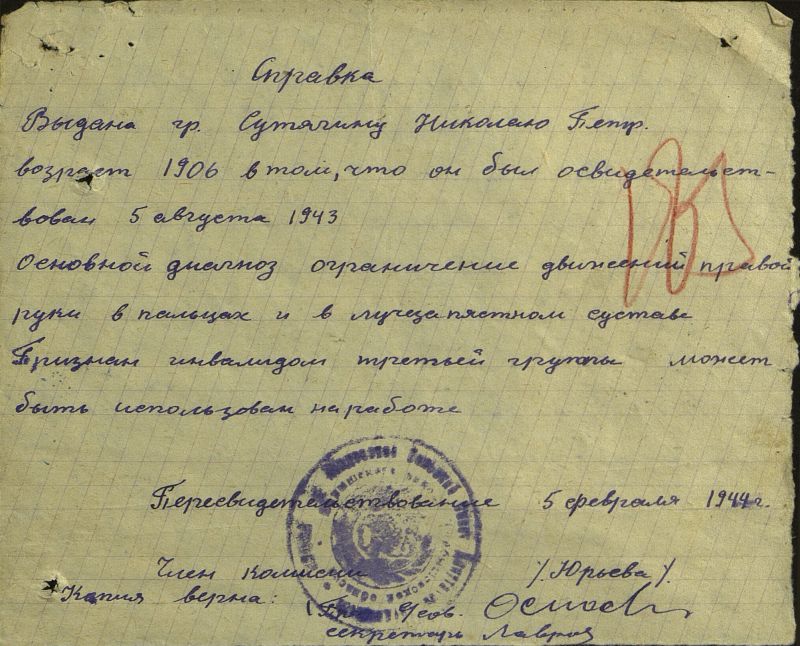 Справка
Выдана гр. Сутячину Николаю Петр.
возраст 1906 в том, что он был освидетельст-
вован 5 августа 1943
Основной диагноз ограничение движений правой
руки в пальцах и в лучезапястном суставе
Признан инвалидом третьей группы может
быть использован на работе
Пересвидетельствование 5 февраля 1944 г.
Член комиссии /Юрьева/.
Капия верна:
секретарь Лавров